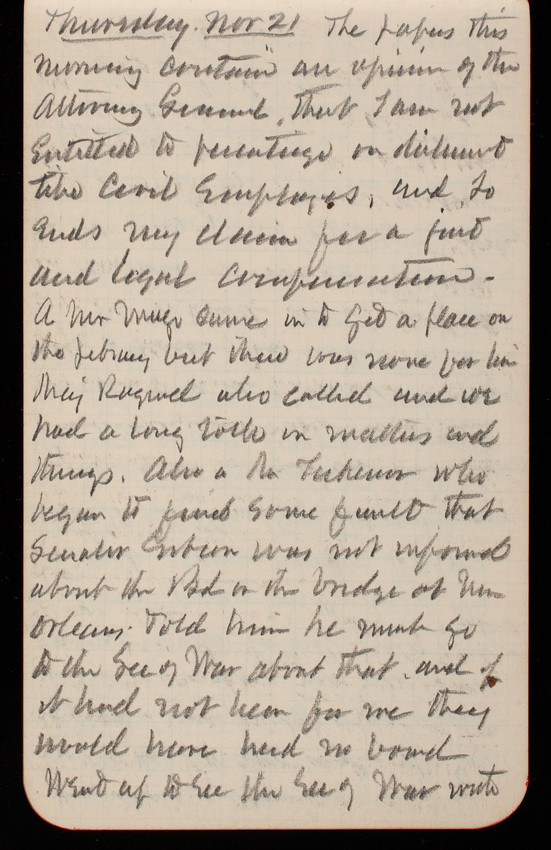 Thursday. Nov 21 The papers this
morning contain an opinion of the
Attorney General, that I am not
Entitled to percentage on disbursmt
like Civil Employees, and so
Ends my claim for a just
and legal compensation -
A Mr came in to get a place on
the but there was none for him
Maj Bagwell also called and we
had a long talk on matters and
things. Also a Mr Tichenor who
began to find some fault that
Senator was not informed
about the Bd on the bridge at New
Orleans. Told him he must go
to the Sec of War about that. and if
it had not been for me they
would have had no board
Went up to see the Sec of War with